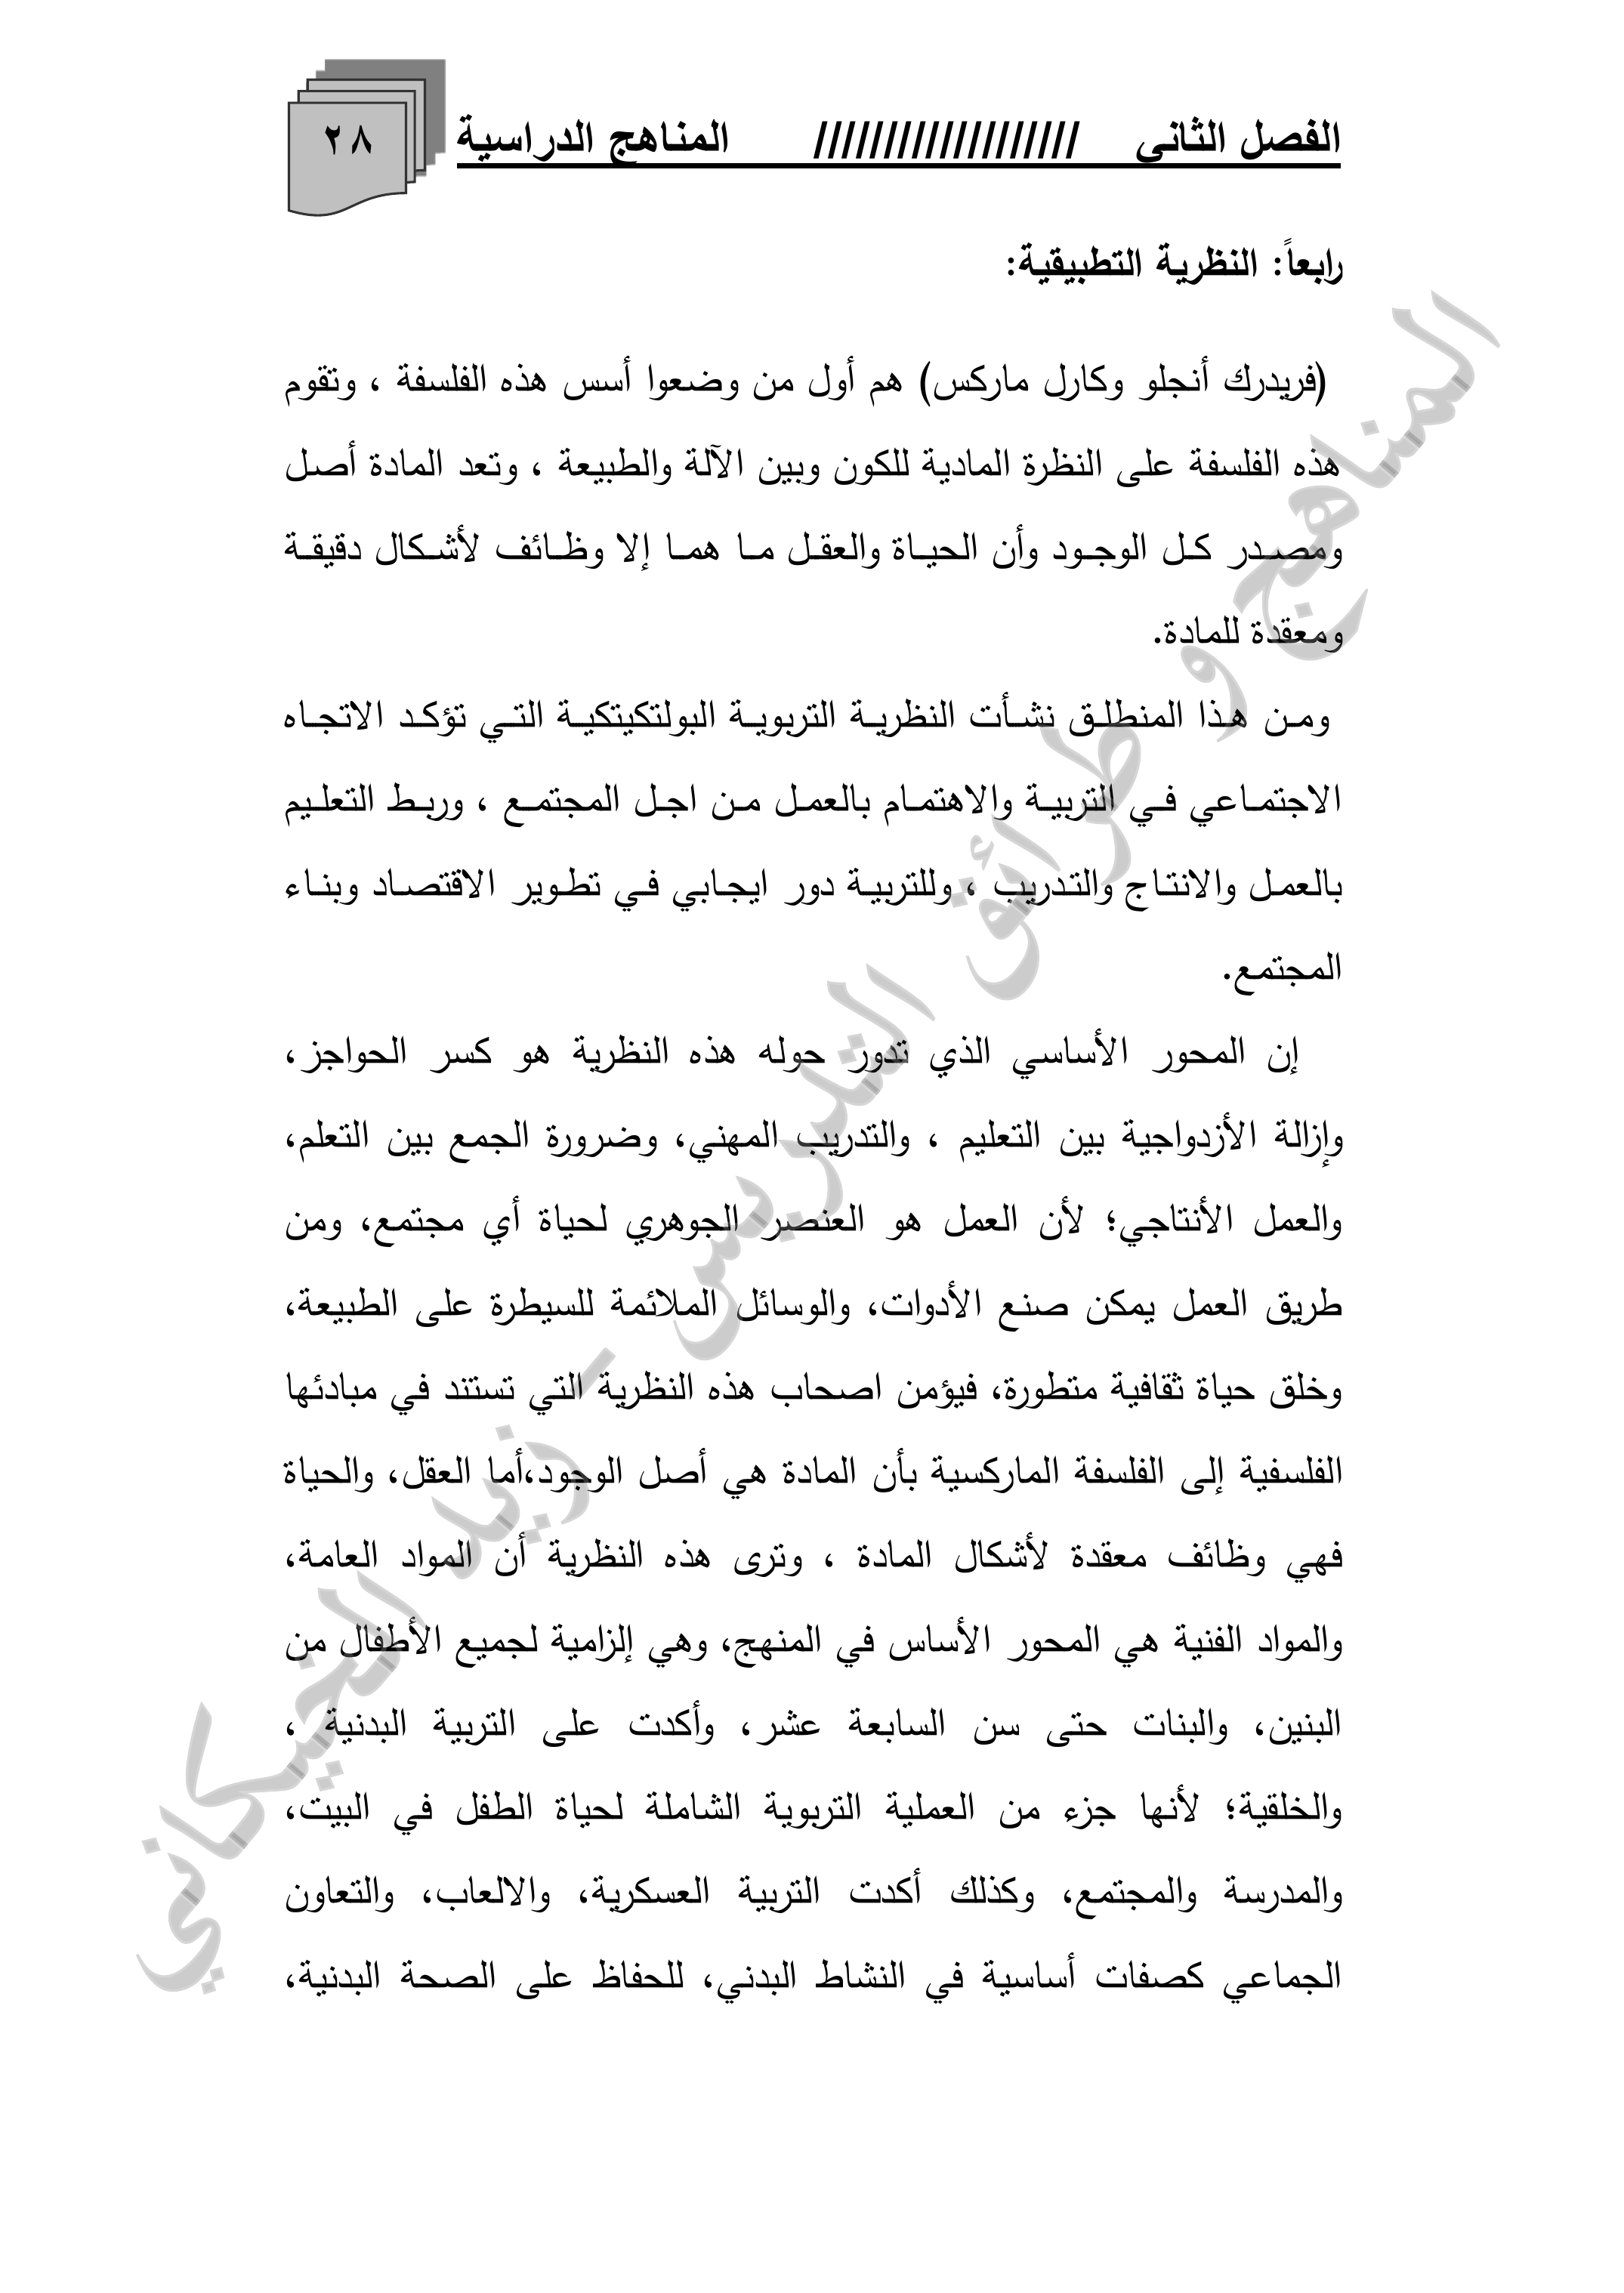 الفصل الثاني /////////////////// المناهج الدراسية ٢٨
رابعاً: النظرية التطبيقية:
(فريدرك أنجلو وكارل ماركس) هم أول من وضعوا أسس هذه الفلسفة ، وتقوم
هذه الفلسفة على النظرة المادية للكون وبين الآلة والطبيعة ، وتعد المادة أصل
ومصدر كل الوجود وأن الحياة والعقل ما هما إلا وظائف لأشكال دقيقة
ومعقدة للمادة.
ومن هذا المنطلق نشأت النظرية التربوية البولتكيتكية التي تؤكد الاتجاه
الاجتماعي في التربية والاهتمام بالعمل من اجل المجتمع ، وربط التعليم
بالعمل والانتاج والتدريب ، وللتربية دور ايجابي في تطوير الاقتصاد وبناء
المجتمع.
إن المحور الأساسي الذي تدور حوله هذه النظرية هو كسر الحواجز،
وإزالة الأزدواجية بين التعليم ، والتدريب المهني، وضرورة الجمع بين التعلم،
والعمل الأنتاجي؛ لأن العمل هو العنصر الجوهري لحياة أي مجتمع، ومن
طريق العمل يمكن صنع الأدوات، والوسائل الملائمة للسيطرة على الطبيعة،
وخلق حياة ثقافية متطورة، فيؤمن اصحاب هذه النظرية التي تستند في مبادئها
الفلسفية إلى الفلسفة الماركسية بأن المادة هي أصل الوجود،أما العقل، والحياة
فهي وظائف معقدة لأشكال المادة ، وترى هذه النظرية أن المواد العامة،
والمواد الفنية هي المحور الأساس في المنهج، وهي إلزامية لجميع الأطفال من
البنين، والبنات حتى سن السابعة عشر، وأكدت على التربية البدنية ،
والخلقية؛ لأنها جزء من العملية التربوية الشاملة لحياة الطفل في البيت،
والمدرسة والمجتمع، وكذلك أكدت التربية العسكرية، والالعاب، والتعاون
الجماعي كصفات أساسية في النشاط البدني، للحفاظ على الصحة البدنية،
المناهج و طرائق التدريس - زيد الخيكاني